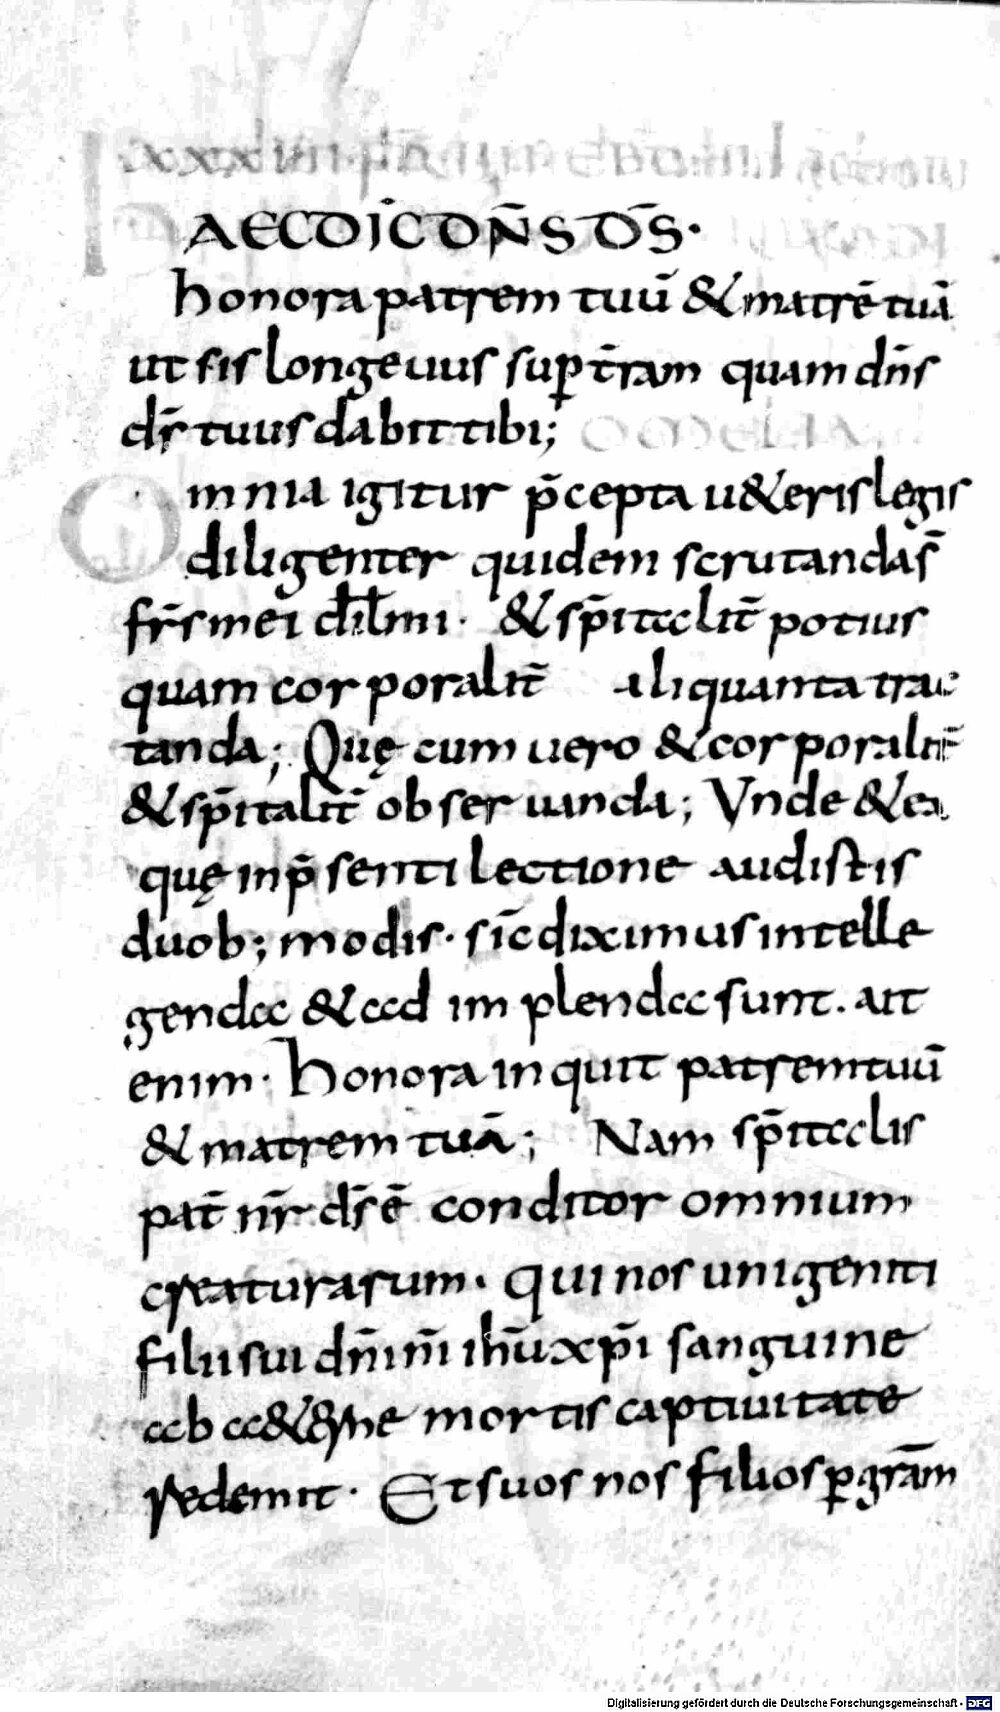 AEC DIC DÑS DS̄·
honora patrem tuū & matrē tuā
ut sis longeuus sup t̄ram quam dn̄s
ds̄ tuus dabit tibi;
OMELIA
Omnia igitur p̄cepta u&eris legis
diligenter quidem scrutanda s̄
fr̄s mei dil̄mi· & sp̄italit̄ potius
quam corporalit̄ aliquanta trac
tanda; Quę cum uero & corporalit̄
& sp̄italit̄ obseruanda; Vnde & ea
quę in p̄senti lectione audistis
duob; modis· sic̄ diximus intelle
genda & ad implenda sunt. ait
enim· honora inquit patrem tuū
& matrem tuā; Nam sp̄italis
pat̄ nr̄ ds̄ ē conditor omnium
creaturarum· qui nos unigeniti
filii sui dn̄i nr̄i ih̄u xp̄i sanguine
ab a&erne mortis captiuitate
redemit· Et suos nos filios p gr̄am
Digitalisierung gefördert durch die Deutsche Forschungsgemeinschaft - DFG